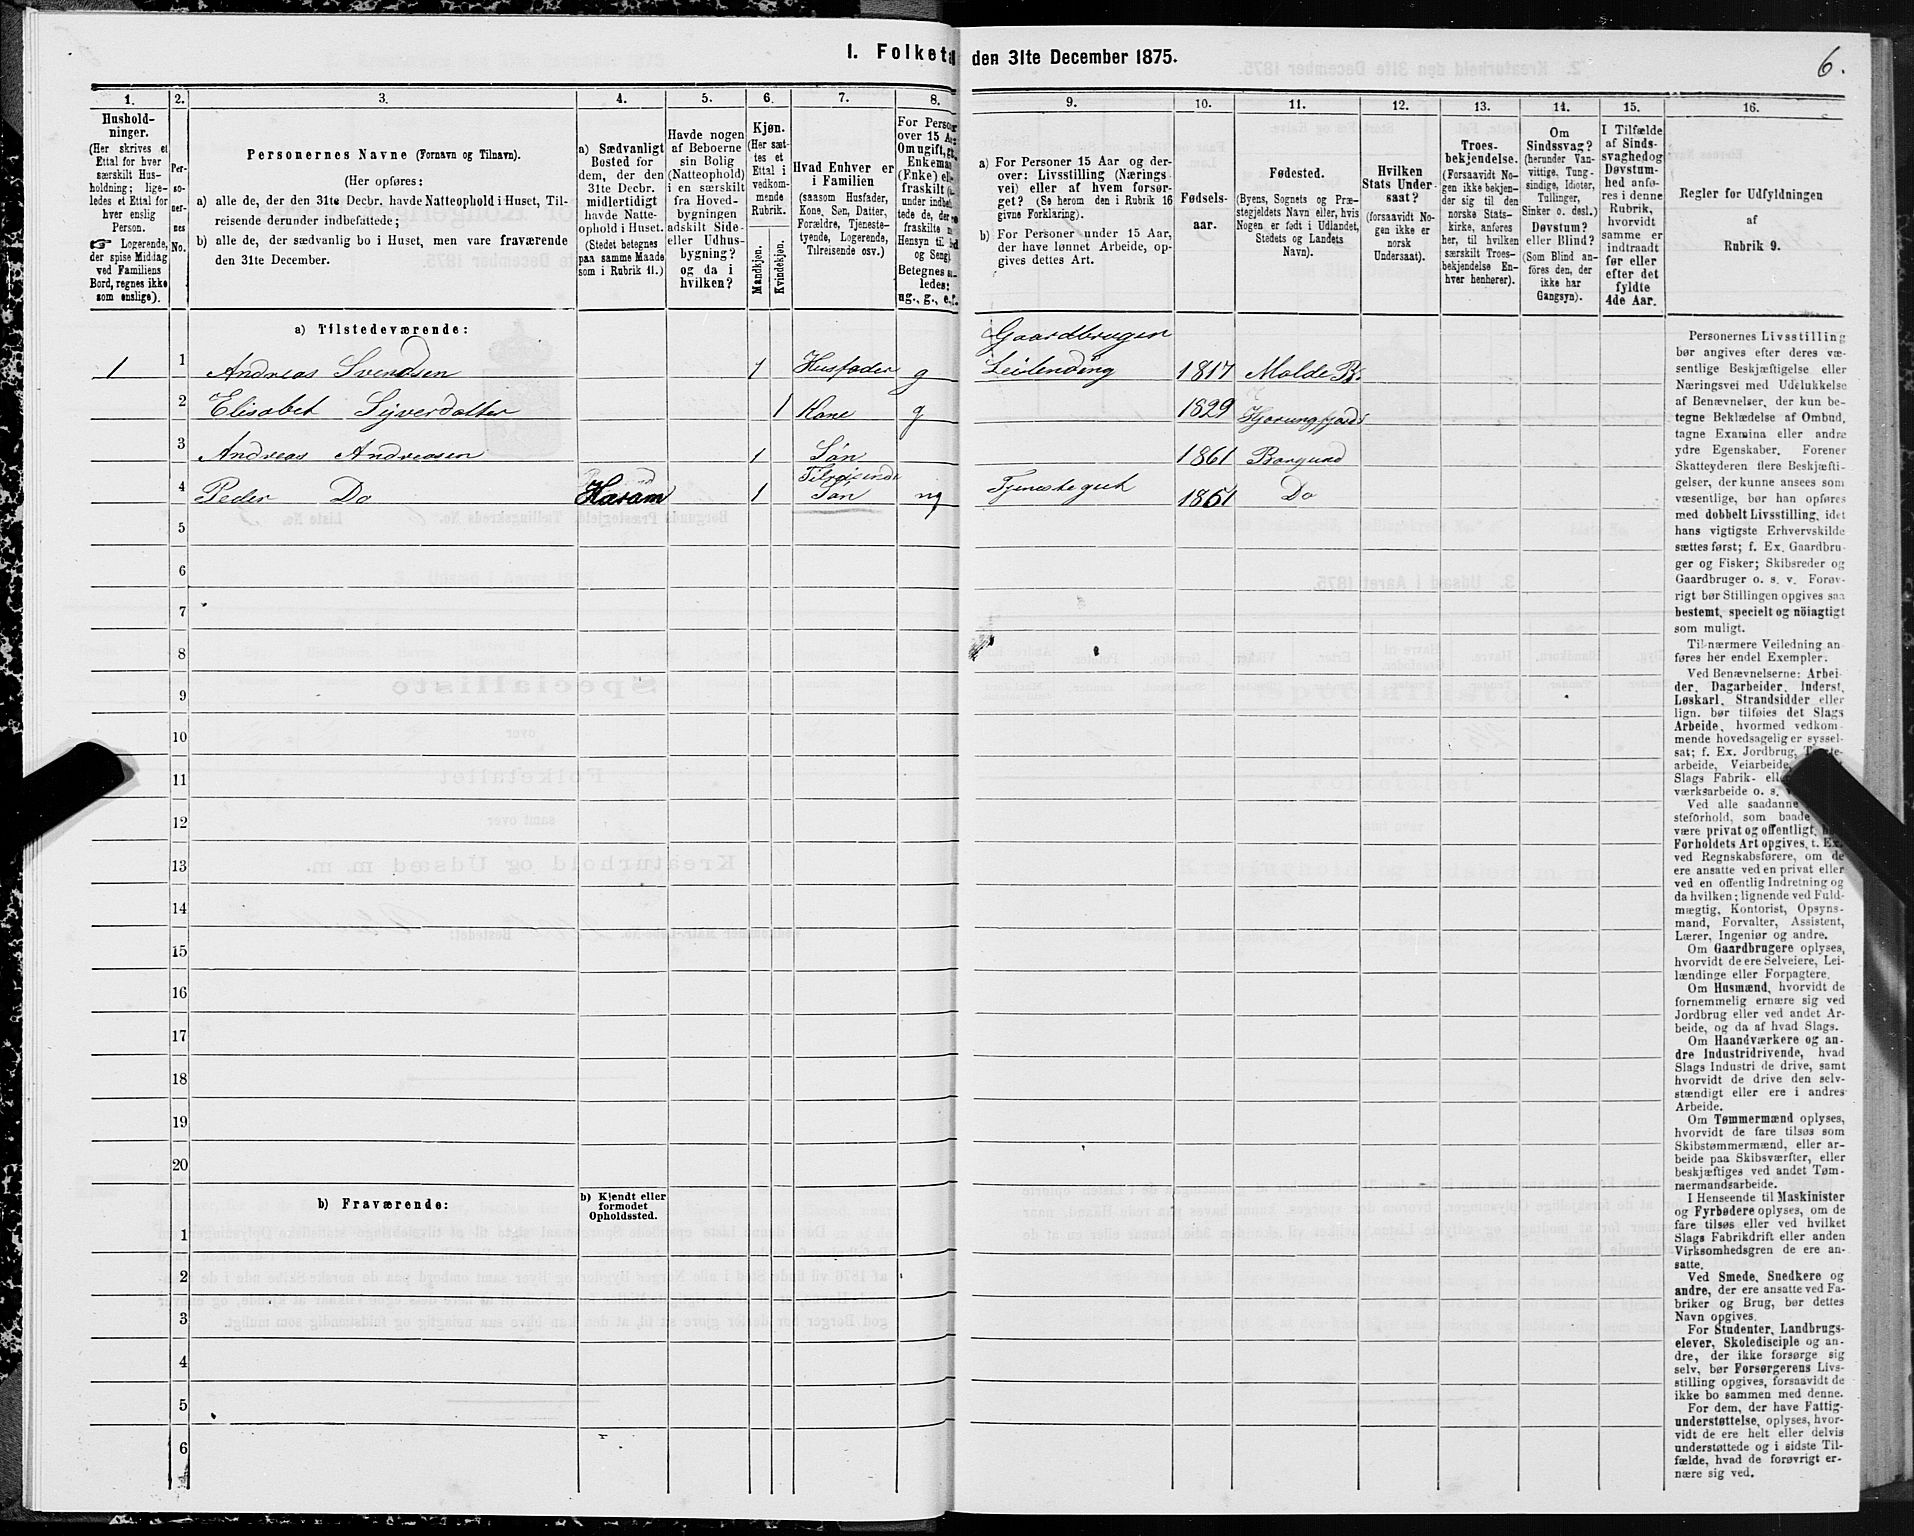 I. Folketæl den 31te December 1875.
6.
1. 2. 3. 4. 5. 6. 7. 8. 9. 10. 11. 12. 13. 14. 15. 16.
Hushold-
ninger.
(Her skrives et
Ettal for hver
særskilt Hus-
holdning; lige-
ledes et Ettal for
hver enslig
Person.
☞ Logerende,
der spise Middag
ved Familiens
Bord, regnes ikke
som enslige).
Per-
so-
ner-
nes
No.
Personernes Navne (Fornavn og Tilnavn).
(Her opføres:
a) alle de, der den 31te Decbr. havde Natteophold i Huset, Til-
reisende derunder indbefattede;
b) alle de, der sædvanlig bo i Huset, men vare fraværende
den 31te December.
a) Sædvanligt
Bosted for
dem, der den
31te Decbr.
midlertidigt
havde Natte-
ophold i Huset.
(Stedet betegnes
paa samme Maade
som i Rubrik 11.)
Havde nogen
af Beboerne
sin Bolig
(Natteophold)
i en særskilt
fra Hoved-
bygningen
adskilt Side-
eller Udhus-
bygning?
og da i
hvilken?
Kjøn.
(Her sæt-
tes et
Ettal i
vedkom-
mende
Rubrik.
Mandkjøn.
Kvindekjøn.
Hvad Enhver er
i Familien
(saasom Husfader,
Kone, Søn, Datter,
Forældre, Tjeneste-
tyende, Logerende,
Tilreisende osv.)
For Person
over 15 Aa
Om ugift, gi
Enkema
(Enke) ell
fraskilt
under indbe
tede de, der
fraskilte
Hensyn til
og Seng).
Betegnes
ledes:
ug., g., e., f.
a) For Personer 15 Aar og der-
over: Livsstilling (Nærings-
vei) eller af hvem forsør-
get? (Se herom den i Rubrik 16
givne Forklaring).
b) For Personer under 15 Aar,
der have lønnet Arbeide, op-
gives dettes Art.
Fødsels-
aar.
Fødested.
(Byens, Sognets og Præ-
stegjeldets Navn eller, hvis
Nogen er født i Udlandet,
Stedets og Landets
Navn).
Hvilken
Stats Under-
saat?
(forsaavidt No-
gen ikke er
norsk
Undersaat).
Troes-
bekjendelse.
(Forsaavidt No-
gen ikke bekjen-
der sig til den
norske Stats-
kirke, anføres
her, til hvilken
særskilt Troes-
bekjendelse En-
hver henhører).
Om
Sindssvag?
(herunder Van-
vittige, Tung-
sindige, Idioter,
Tullinger,
Sinker o. desl.)
Døvstum?
eller Blind?
(Som Blind an-
føres den, der
ikke har
Gangsyn).
I Tilfælde
af Sinds-
svaghed og
Døvstum-
hed anfø-
res i denne
Rubrik,
hvorvidt
samme er
indtraadt
før eller
efter det
fyldte
4de Aar.
Regler for Udfyldningen
af
Rubrik 9.
a) Tilstedeværende:
1 1 Andreas Svendsen 1 Husfader g Gaardbruger Leilending 1817 Molde B.
2 Elisabet Siverdatter 1 Kone g 1829 Hjørungfjord
3 Andreas Andreasen 1 Søn 1861 Borgund
4 Peder Do Haram 1 Tilreisende Søn ug Tjenestegut 1851 Do
5
6
7
8
9
10
11
12
13
14
15
16
17
18
19
20
b) Fraværende:
b) Kjendt eller
formodet
Opholdssted.
1
2
3
4
5
6
Personernes Livsstilling
bør angives efter deres væ-
sentlige Beskjæftigelse eller
Næringsvei med Udelukkelse
af Benævnelser, der kun be-
tegne Beklædelse af Ombud,
tagne Examina eller andre
ydre Egenskaber. Forener
Skatteyderen flere Beskjæfti-
gelser, der kunne ansees som
væsentlige, bør han opføres
med dobbelt Livsstilling, idet
hans vigtigste Erhvervskilde
sættes først; f. Ex. Gaardbru-
ger og Fisker; Skibsreder og
Gaardbruger o. s. v. Forøv-
rigt bør Stillingen opgives saa
bestemt, specielt og nöiagtigt
som muligt.
Til nærmere Veiledning an-
føres her endel Exempler.
Ved Benævnelserne: Arbei-
der, Dagarbeider, Inderst,
Løskarl, Strandsidder eller
lign. bør tilføies det Slags
Arbeide, hvormed vedkom-
mende hovedsagelig er syssel-
sat; f. Ex. Jordbrug,
arbeide, Veiarbeide,
Slags Fabrik-
værksarbeide o. s. v.
Ved alle saadanne
steforhold, som baade
være privat og offentligt,
Forholdets Art opgives, t. Ex.
ved Regnskabsførere, om de
ere ansatte ved en privat eller
ved en offentlig Indretning og
da hvilken; lignende ved Fuld-
mægtig, Kontorist, Opsyns-
mand, Forvalter, Assistent,
Lærer, Ingeniør og andre.
Om Gaardbrugere oplyses,
hvorvidt de ere Selveiere, Lei-
lændinge eller Forpagtere.
Om Husmænd, hvorvidt de
fornemmelig ernære sig ved
Jordbrug eller ved andet Ar-
beide, og da af hvad Slags.
Om Haandværkere og an-
dre Industridrivende, hvad
Slags Industri de drive, samt
hvorvidt de drive den selv-
stændigt eller ere i andres
Arbeide.
Om Tømmermænd oplyses,
hvorvidt de fare tilsøs som
Skibstømmermænd, eller ar-
beide paa Skibsværfter, eller
beskjæftiges ved andet Tøm-
mermandsarbeide.
I Henseende til Maskinister
og Fyrbødere oplyses, om de
fare tilsøs eller ved hvilket
Slags Fabrikdrift eller anden
Virksomhedsgren de ere an-
satte.
Ved Smede, Snedkere og
andre, der ere ansatte ved Fa-
briker og Brug, bør dettes
Navn opgives.
For Studenter, Landbrugs-
elever, Skoledisciple og an-
dre, der ikke forsørge sig
selv, bør Forsørgerens Livs-
stilling opgives, forsaavidt de
ikke bo sammen med denne.
For dem, der have Fattig-
understøttelse, oplyses, hvor-
vidt de ere helt eller delvis
understøttede og i sidste Til-
fælde, hvad de forøvrigt er-
nære sig ved.